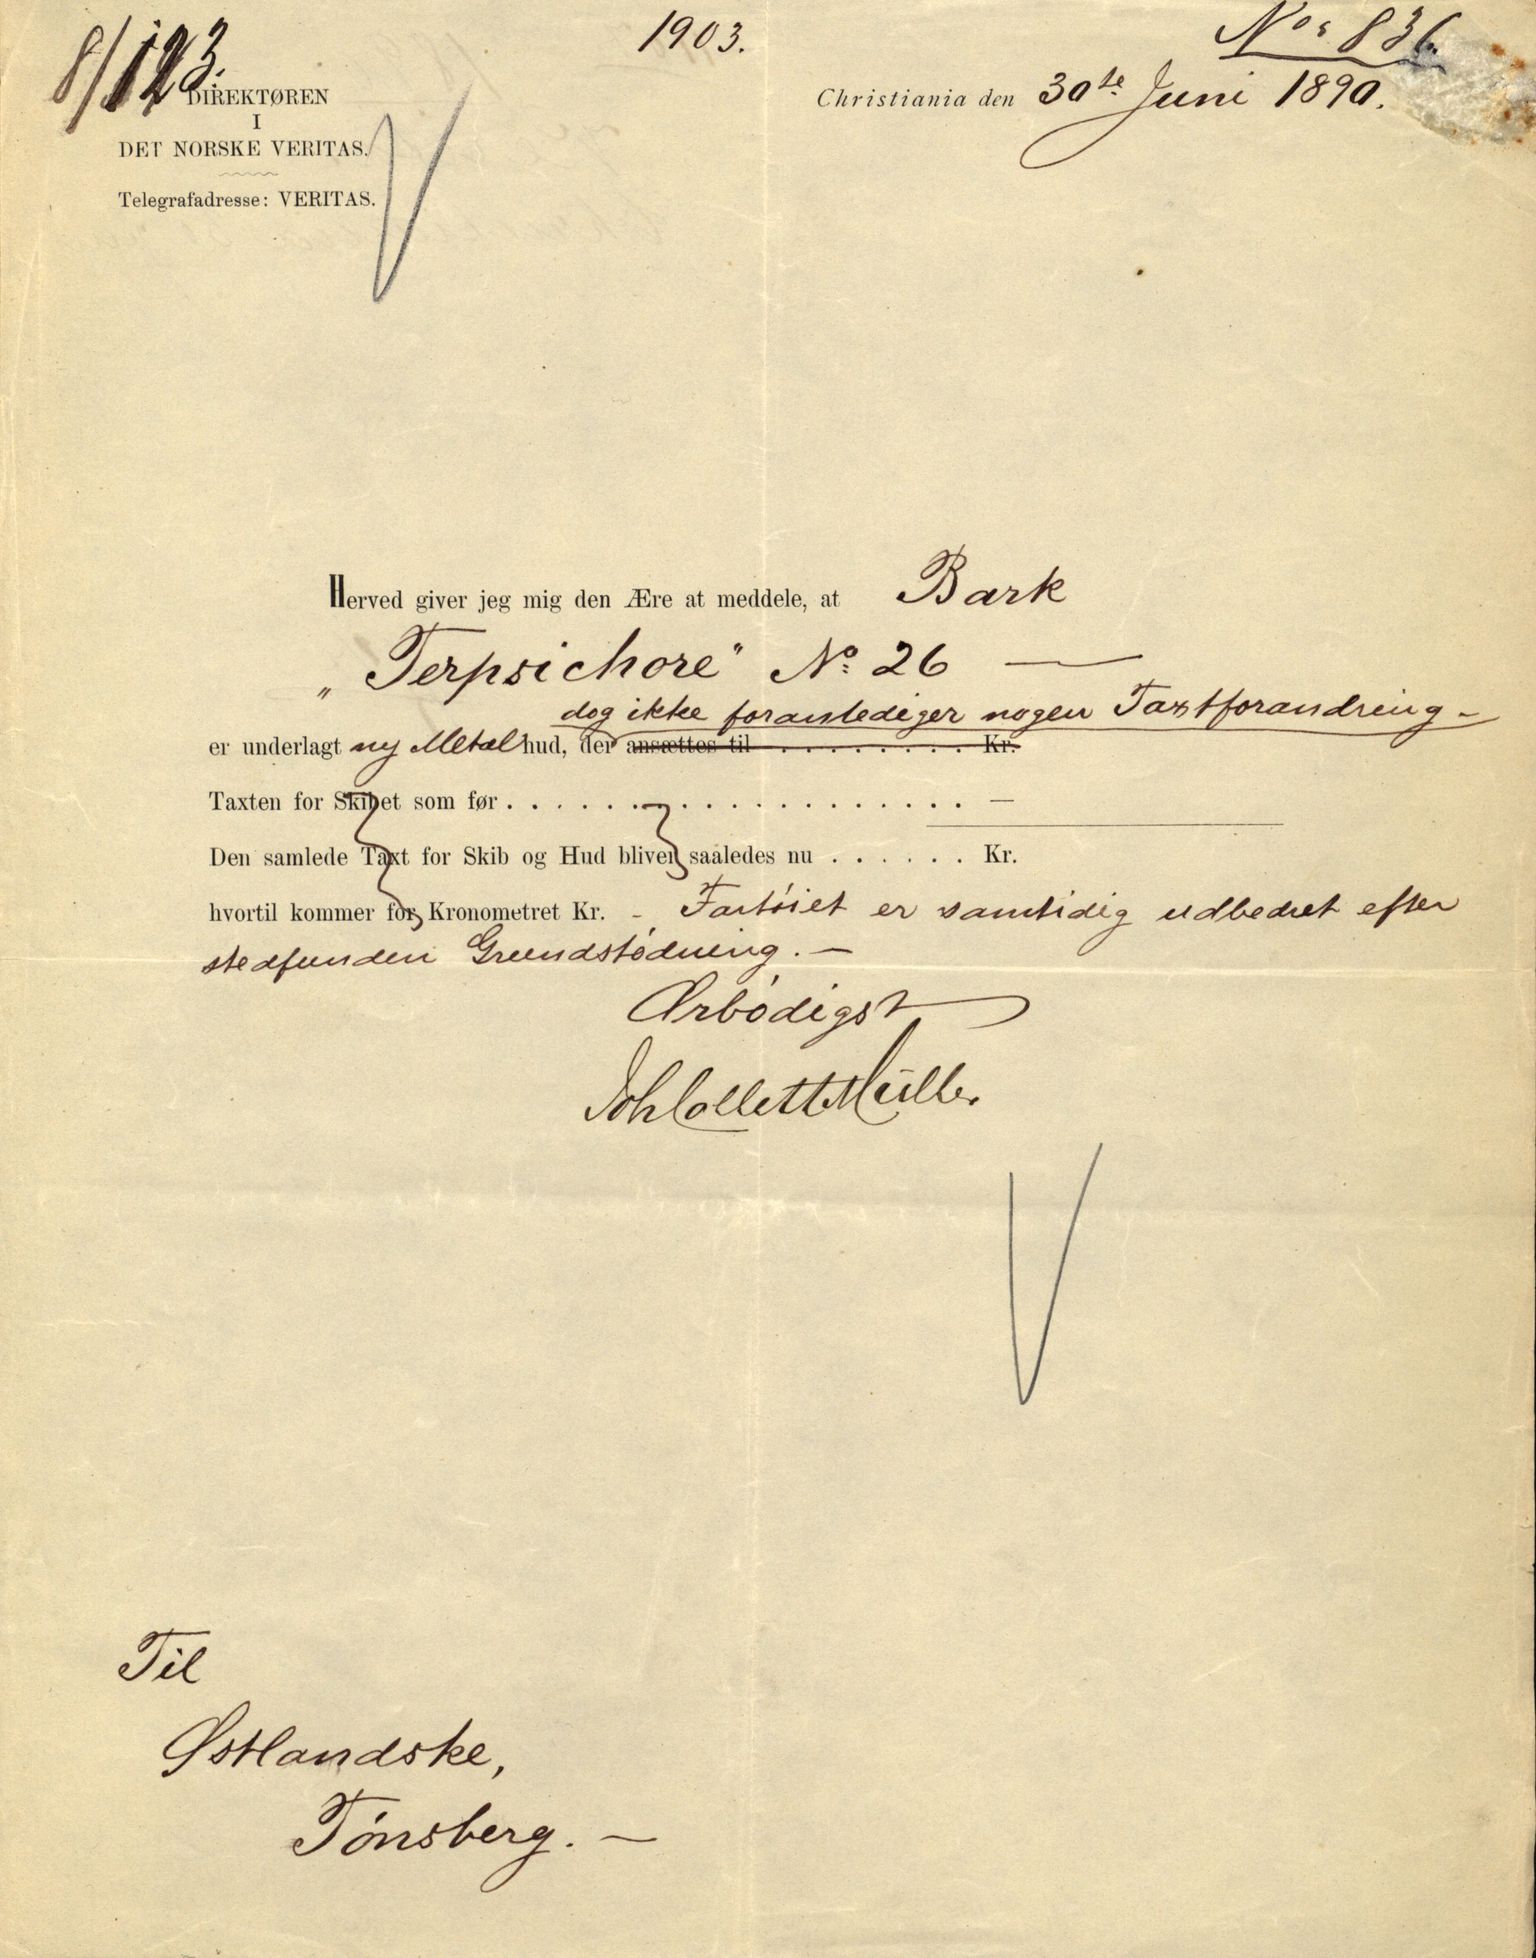 8/123.
1903.
No 836.
DIREKTØREN
I
DET NORSKE VERITAS.
Telegrafadresse: VERITAS.
Christiania den 30te Juni 1890.
Herved giver jeg mig den Ære at meddele, at Bark
"Terpsichore" No. 26 —
dog ikke foranlediger nogen Taxtforandring —
er underlagt ny Metal hud, der ansættes til . . . . . . . . Kr.
Taxten for Skibet som før . . . . . . . . . . . . . . . . . . —
Den samlede Taxt for Skib og Hud bliver saaledes nu . . . . . . Kr.
hvortil kommer for Kronometret Kr. - Fartöiet er samtidig udbedret efter
stedfunden Grundstödning. —
Ærbödigst
Joh Collett Müller.
Til
Østlandske,
Tönsberg. —